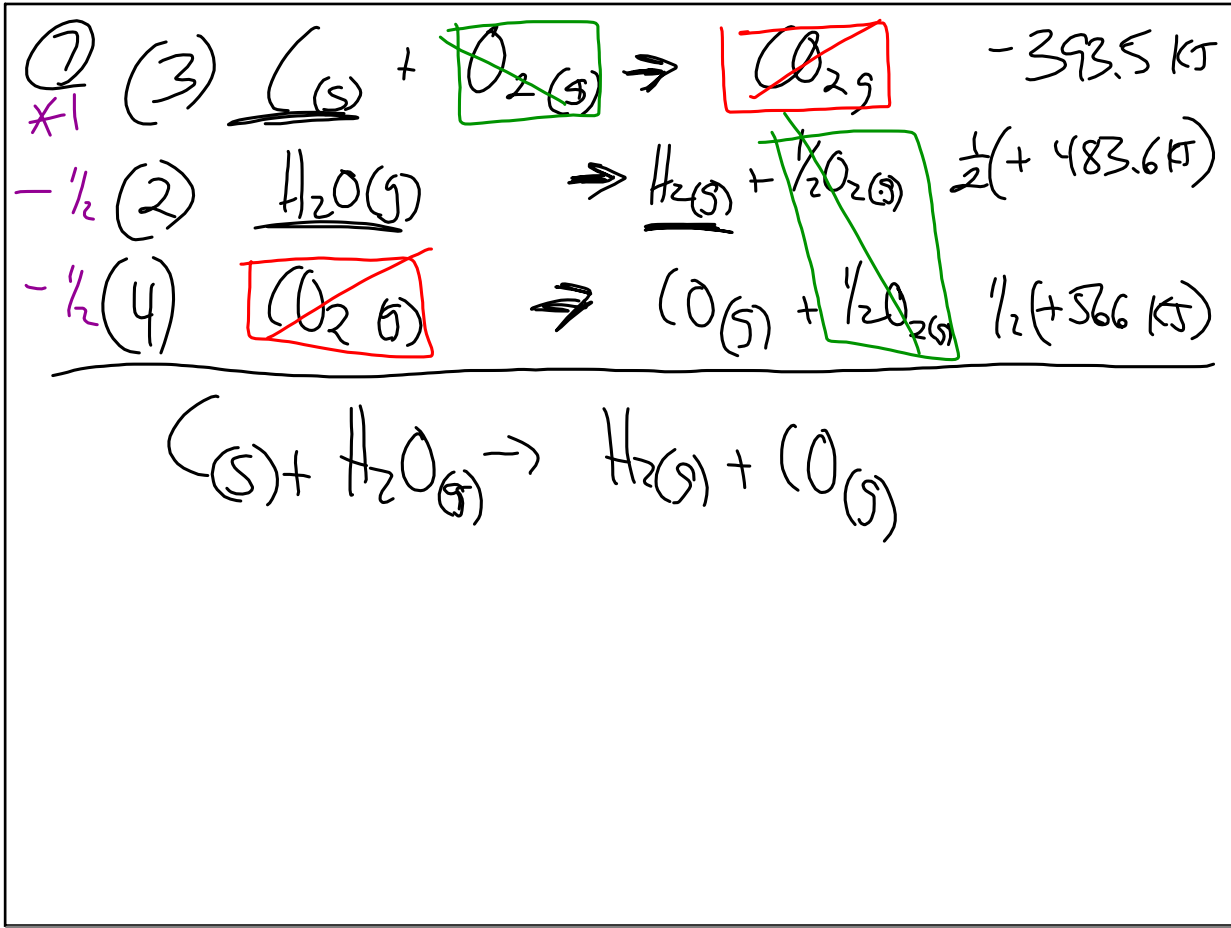 ① (3) C(s) + O2(g) → CO2g -393.5 KJ
*1
-1/2 (2) H2O(g) → H2(g) + 1/2O2(g) 1/2(+ 483.6KJ)
-1/2 (4) CO2(g) → CO(g) + 1/2O2(g) 1/2(+566 KJ)
C(s) + H2O(g) → H2(g) + CO(g)